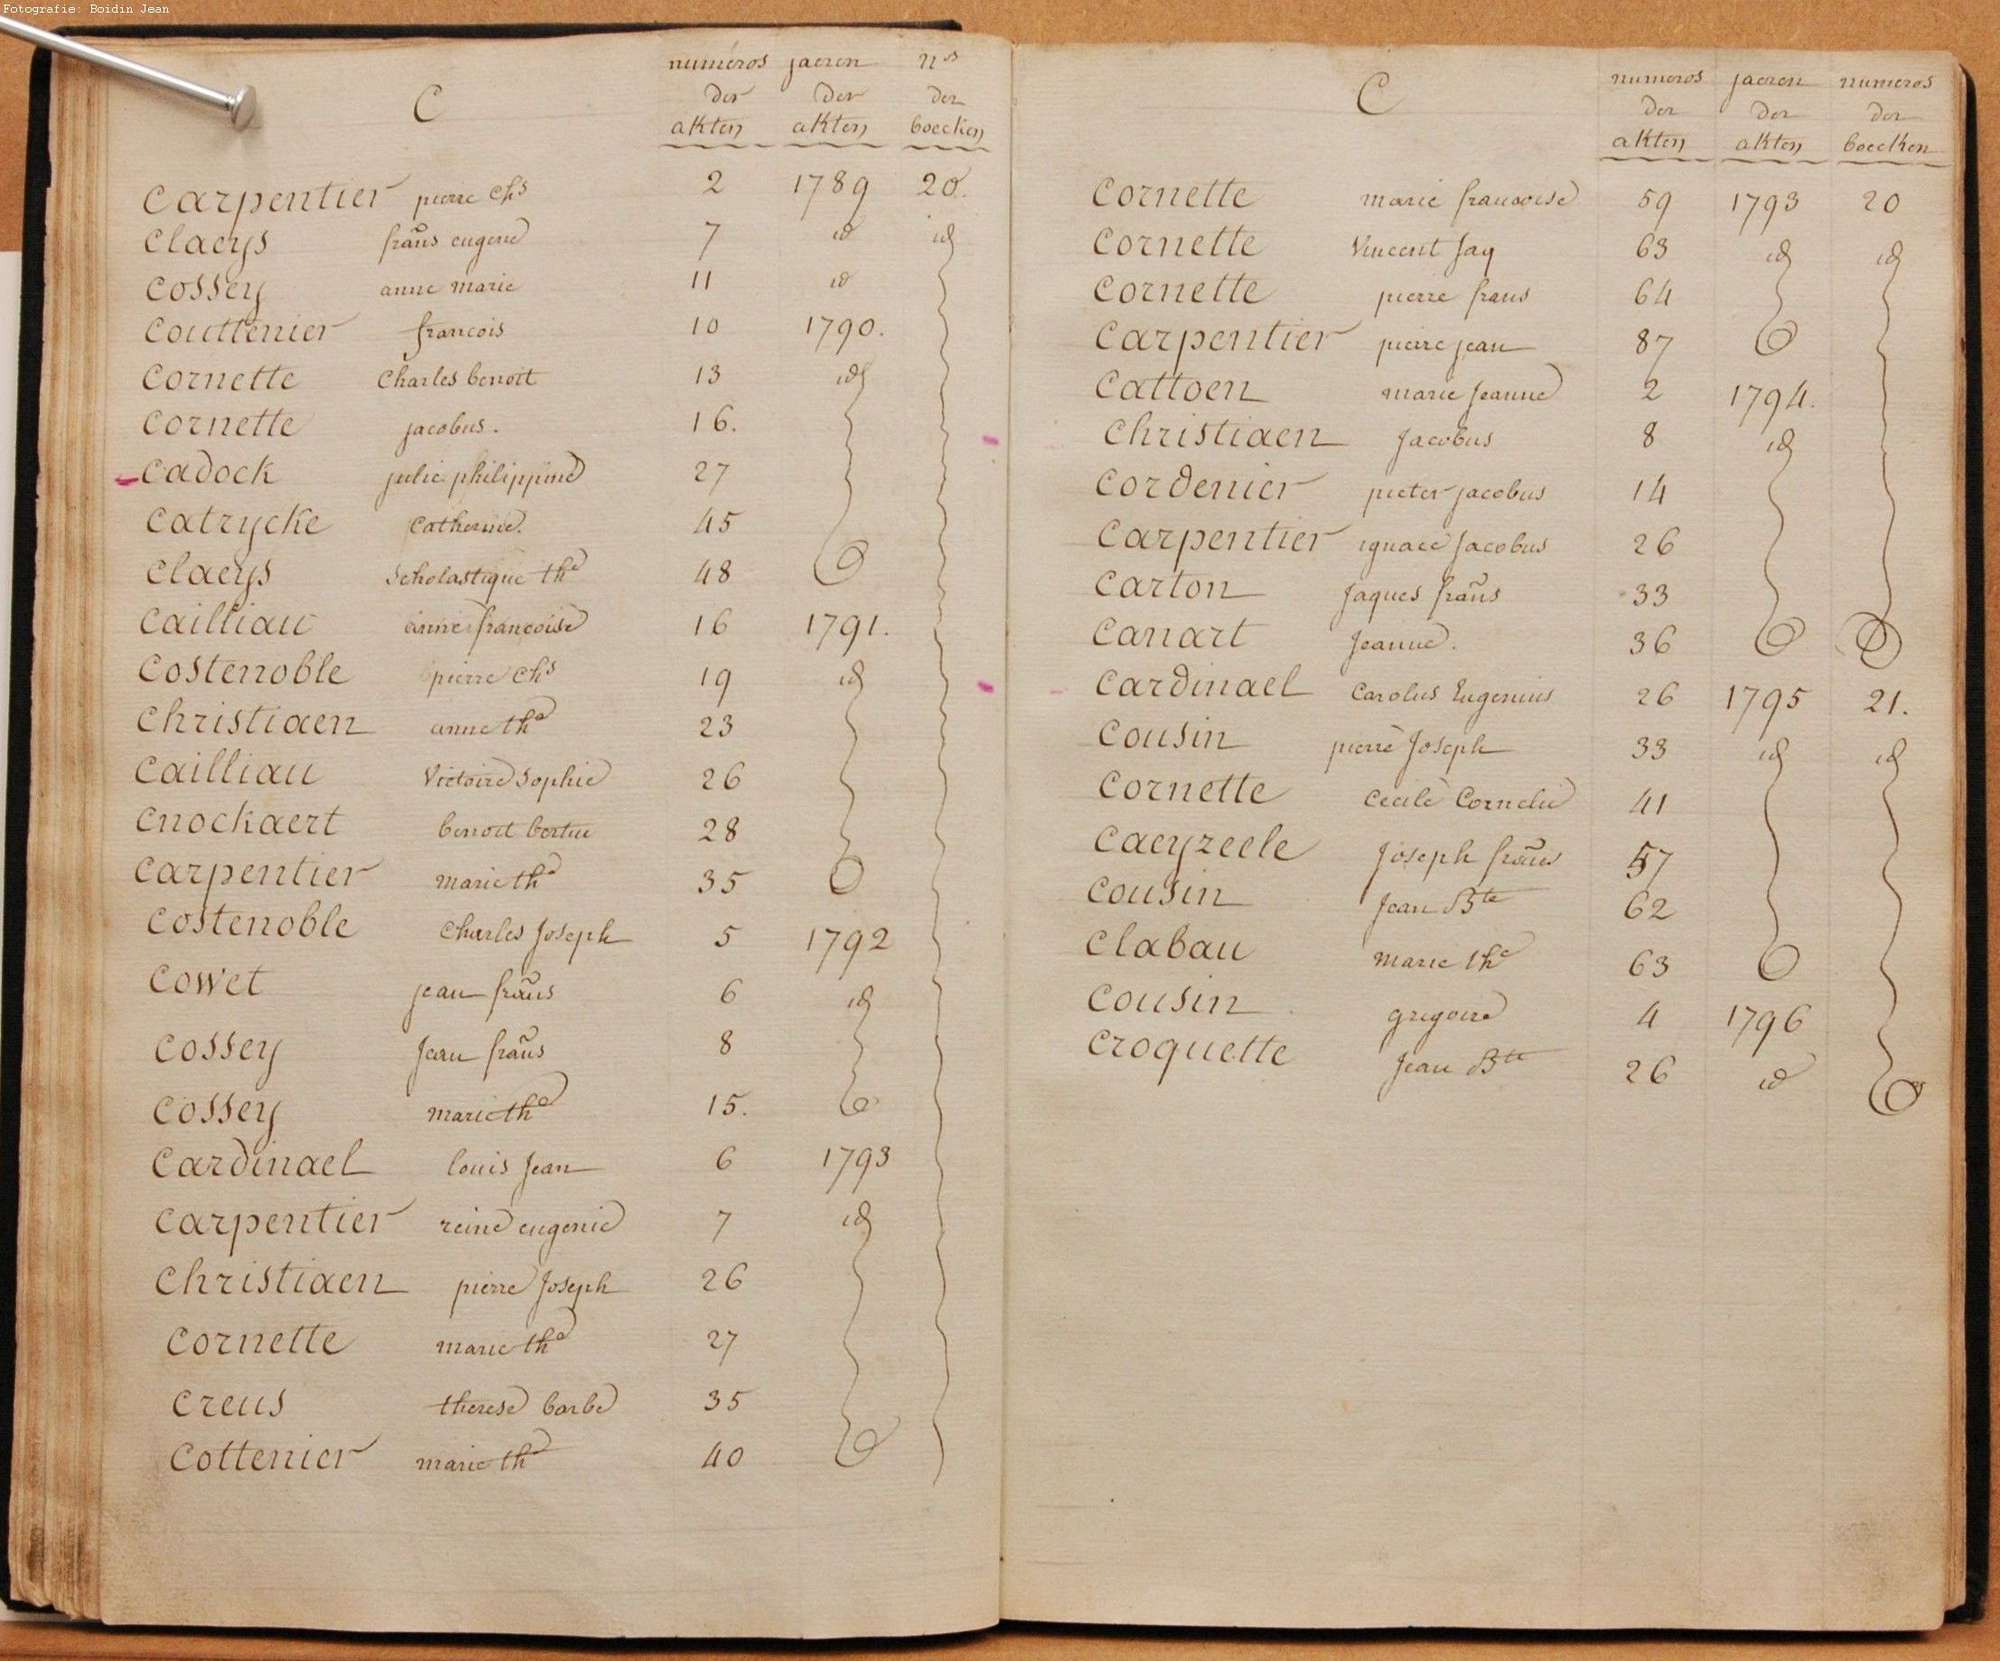 Fotografie: Boidin Jean
C
numéros jaeren n^os
der der der
akten akten boecken
Carpentier pierre ch^s 2 1789 20.
Claeys frans eugene 7 id id
Cossey anne marie 11 id
Couttenier francois 10 1790.
Cornette Charles benoit 13 id
Cornette jacobus. 16.
Cadock julie philippine 27
Catrycke Catherine. 45
Claeys Scholastique th^e 48
Cailliau anne françoise 16 1791.
Costenoble pierre ch^s 19 id
Christiaen anne th^e 23
Cailliau Victoire Sophie 26
Cnockaert benoit 28
Carpentier marie th^e 35
Costenoble Charles Joseph 5 1792
Cowet jean frans 6 id
Cossey Jean frans 8
Cossey marie th^e 15.
Cardinael louis Jean 6 1793
Carpentier reine eugenie 7 id
Christiaen pierre Joseph 26
Cornette marie th^e 27
Creus therese barbe 35
Cottenier marie th^e 40
C
numeros jaeren numeros
der der der
akten akten boecken
Cornette marie francoise 59 1793 20
Cornette Vincent Jaq 63 id id
Cornette pierre frans 64
Carpentier pierre jean 87
Cattoen marie Jeanne 2 1794.
Christiaen Jacobus 8 id
Cordenier pieter jacobus 14
Carpentier ignace Jacobus 26
Carton Jaques frans 33
Canart Jeanne. 36
Cardinael Carolus Eugenius 26 1795 21.
Cousin pierre Joseph 33 id id
Cornette Cecile Cornelie 41
Caeyzeele Joseph frans 57
Cousin Jean B^te 62
Clabau marie th^e 63
Cousin gregoire 4 1796
Croquette Jean B^te 26 id